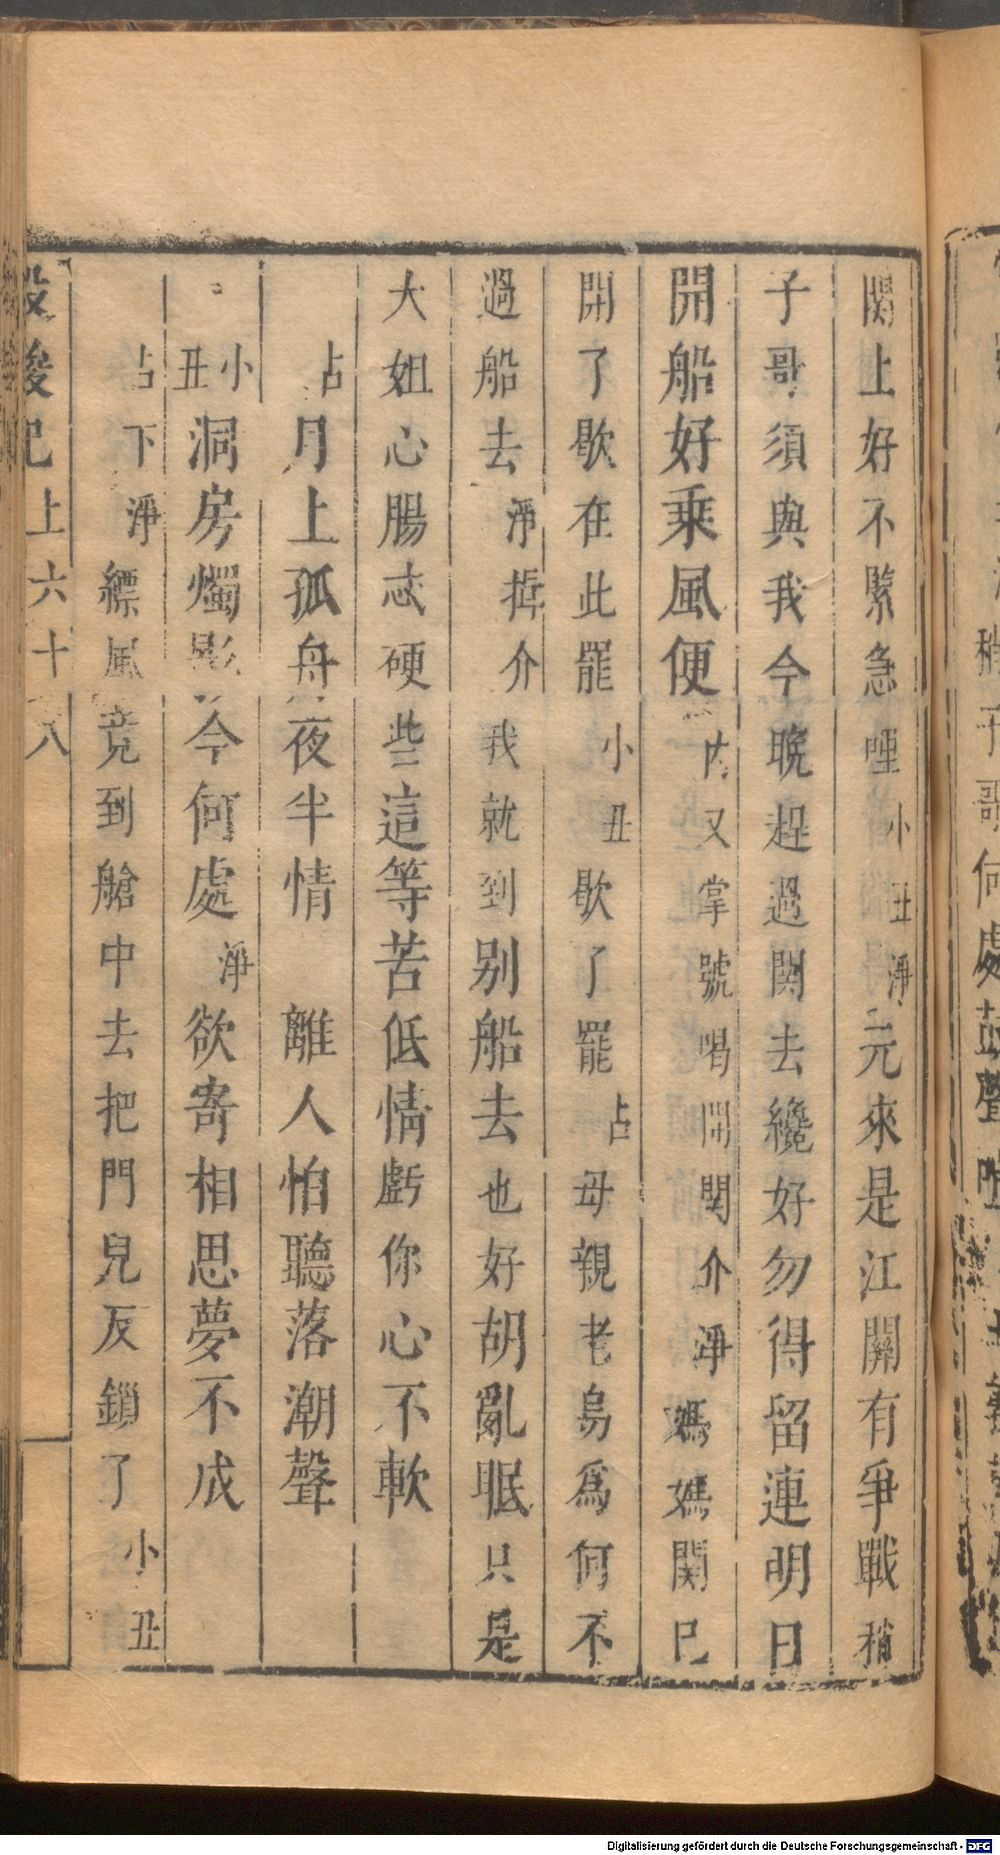 関上好不緊急哩小丑淨元來是江關有爭戰稍
子哥須與我今晚趕過関去纔好勿得留連明日
開船好乘風便内又掌號喝開関介淨媽媽関已
開了歇在此罷小丑歇了罷占母親老身爲何不
過船去淨推介我就到别船去也好胡亂眠只是
大姐心腸忒硬些這等苦低情虧你心不軟
占月上孤舟夜半情 離人怕聽落潮聲
小丑洞房燭影今何處淨欲寄相思夢不成
占下淨縹風竟到艙中去把門兒反鎖了小丑
投梭记上六十八
稍子哥何處鼓聲
Digitalisierung gefördert durch die Deutsche Forschungsgemeinschaft - DFG